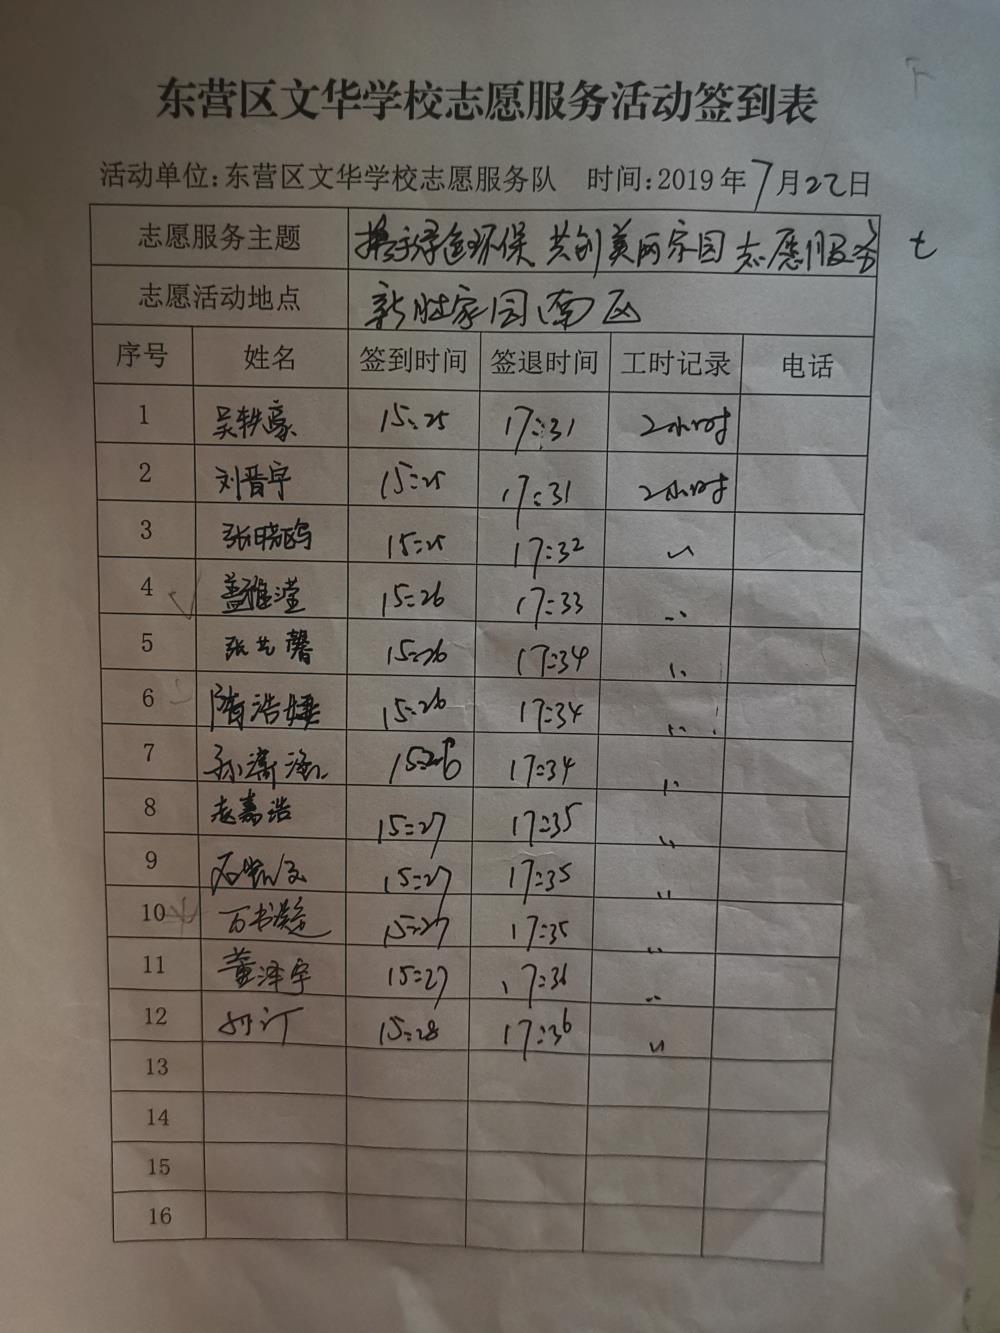 东营区文华学校志愿服务活动签到表
活动单位:东营区文华学校志愿服务队 时间:2019年7月22日
志愿服务主题 携手绿色环保 共创美丽家园 志愿服务
志愿活动地点 新胜家园南区
序号 姓名 签到时间 签退时间 工时记录 电话
1 吴轶豪 15:25 17:31 2小时
2 刘晋宇 15:25 17:31 2小时
3 张晓鸥 15:25 17:32 〃
4 盖雅滢 15:26 17:33 〃
5 张艺馨 15:26 17:34 〃
6 隋浩婕 15:26 17:34 〃
7 孙 15:26 17:34 〃
8 赵嘉浩 15:27 17:35 〃
9 15:27 17:35 〃
10 万书 15:27 17:35 〃
11 董泽宇 15:27 17:36 〃
12 15:28 17:36 〃
13
14
15
16